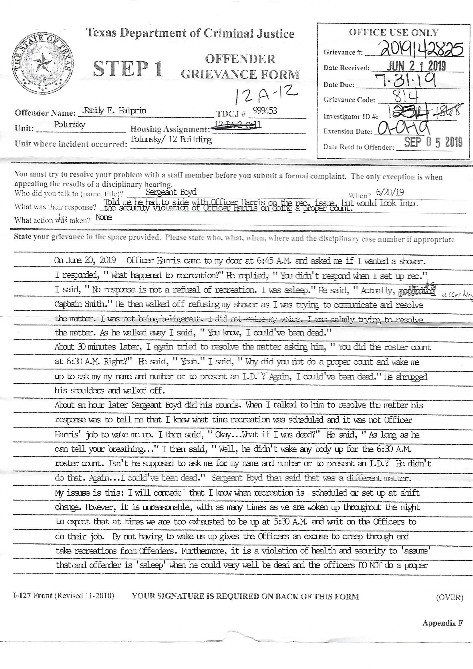 Texas Department of Criminal Justice
STEP 1
OFFENDER
GRIEVANCE FORM
12 A-12
Offender Name: Randy E. Halprin TDCJ # 999453
Unit: Polunsky Housing Assignment:
Unit where incident occurred: Polunsky/ 12 Building
OFFICE USE ONLY
Grievance #: 2019142825
Date Received: JUN 21 2019
Date Due: 7-31-19
Grievance Code: 814
Investigator ID #:
Extension Date:
Date Retd to Offender: SEP 05 2019
You must try to resolve your problem with a staff member before you submit a formal complaint. The only exception when
appealing the results of a disciplinary hearing.
Who did you talk to (name, title)? Sergeant Boyd When? 6/20/19
What was their response? Told me he had to side with Officer Harris on the rec. issue, but would look into
the security violation of Officer Harris on doing a proper count.
What action was taken? None
State your grievance in the space provided. Please state who, what, when, where and the disciplinary case number if appropriate
On June 20, 2019 Officer Harris came to my door at 6:45 A.M. and asked me if I wanted a shower.
I responded, " What happened to recreation?" He replied, " You didn't respond when I set up rec."
I said, " No response is not a refusal of recreation. I was asleep." He said, " Actually,
Captain Smith." He then walked off refusing my shower as I was trying to communicate and resolve
the matter. I was not being belligerent. I did not raise my voice. I was calmly trying to resolve
the matter. As he walked away I said, " You know, I could've been dead."
About 30 minutes later, I again tried to resolve the matter asking him, " You did the roster count
at 6:30 A.M. Right?" He said, " Yeah." I said, " Why did you not do a proper count and wake me
up to ask my my name and number or to present an I.D.? Again, I could've been dead." He shrugged
his shoulders and walked off.
About an hour later Sergeant Boyd did his rounds. When I talked to him to resolve the matter his
response was to tell me that I knew what time recreation was scheduled and it was not Officer
Harris' job to wake me up. I then said, " Okay...What if I was dead?" He said, " As long as he
can tell your breathing..." I then said, " Well, he didn't wake any body up for the 6:30 A.M.
roster count. Isn't he supposed to ask me for my name and number or to present an I.D.? He didn't
do that. Again...I could've been dead." Sergeant Boyd then said that was a different matter.
My issues is this: I will concede that I know when recreation is scheduled or set up at shift
change. However, it is unreasonable, with as many times as we are woken up throughout the night
to expect that at times we are too exhausted to be up at 5:30 A.M. and wait on the Officers to
do their job. By not having to wake us up gives the Officers an excuse to creep through and
take recreations from Offenders. Furthermore, it is a violation of health and security to 'assume'
that and offender is 'asleep' when he could very well be dead and the officers DO NOT do a proper
I-127 Front (Revised 11-2010) YOUR SIGNATURE IS REQUIRED ON BACK OF THIS FORM (OVER)
Appendix F